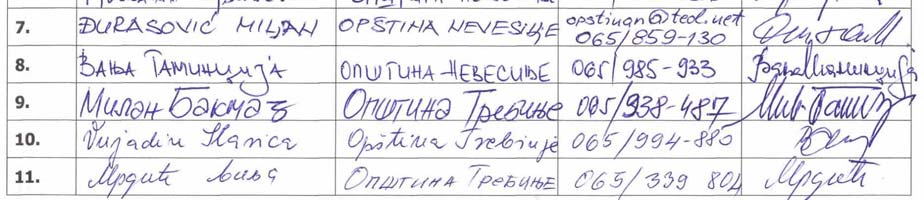 7. ĐURASOVIĆ MILJAN OPŠTINA NEVESINJE opstinan@teol.net
065/859-130
8. ВАЊА ТАМИНЏИЈА ОПШТИНА НЕВЕСИЊЕ 065/985-933
9. Милан Бакмаз Општина Требиње 095/938-487
10. Vujadin Slavica Opština Trebinje 065/994-880
11. Мрдић Општина Требиње 065/339 804 Мрдић